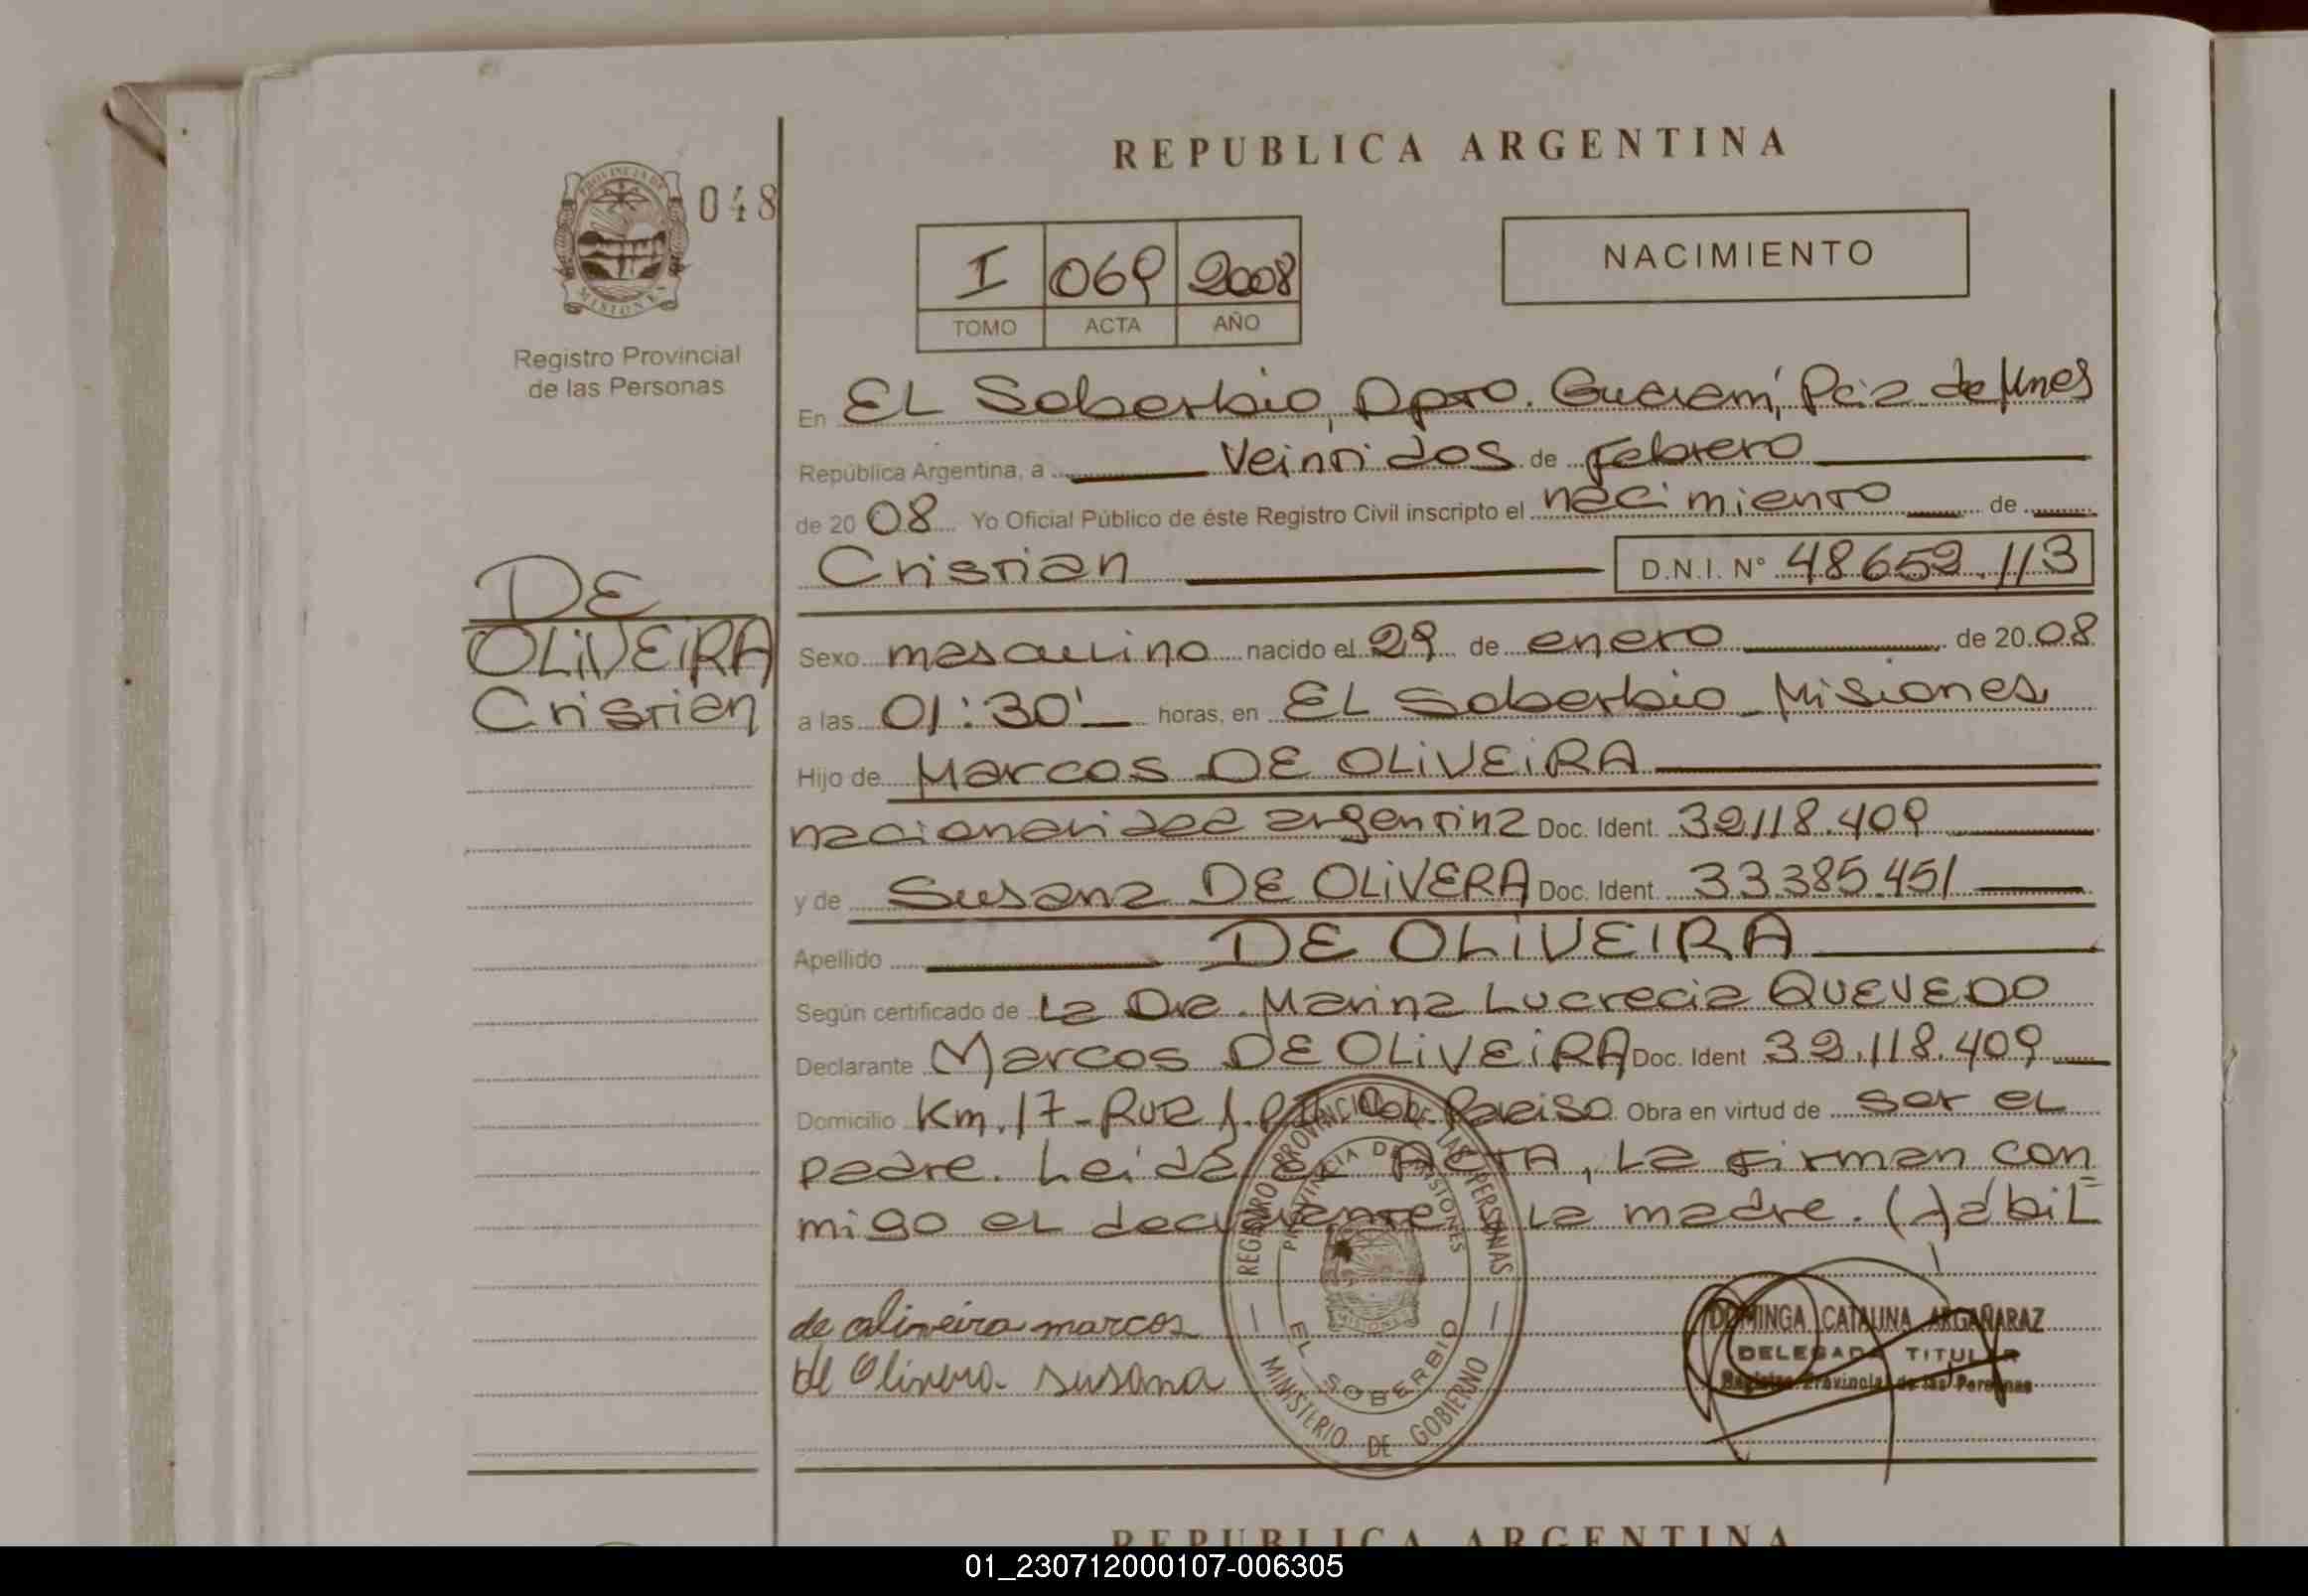 REPUBLICA ARGENTINA
PROVINCIA DE
MISIONES
048
I 069 2008
TOMO ACTA AÑO
NACIMIENTO
Registro Provincial
de las Personas
DE
OLIVEIRA
Cristian
En EL Soberbio, Dpto. Guaraní, Pcia de Mnes
República Argentina, a veintidos de febrero
de 2008 Yo Oficial Público de éste Registro Civil inscripto el nacimiento de
Cristian D.N.I. N° 48652.113
Sexo masculino nacido el 29 de enero de 2008
a las 01:30' horas, en EL Soberbio - Misiones
Hijo de Marcos DE OLIVEIRA
nacionalidad argentina Doc. Ident. 39118.409
y de Susana DE OLIVERA Doc. Ident. 33385.451
Apellido DE OLIVEIRA
Según certificado de La Dra. Marina Lucrecia QUEVEDO
Declarante Marcos DE OLIVEIRA Doc. Ident 39.118.409
Domicilio Km. 17 - Col. Paraiso Obra en virtud de ser el
padre. Leida el ACTA, La firman con
migo el declarante y La madre.
de oliveira marcos
de Olivera susana
REGISTRO PROVINCIAL DE LAS PERSONAS
PROVINCIA DE MISIONES
MISIONES
EL SOBERBIO
MINISTERIO DE GOBIERNO
DOMINGA CATALINA ARGAÑARAZ
DELEGADA TITULAR
Registro Provincial de las Personas
REPUBLICA ARGENTINA
01_230712000107-006305